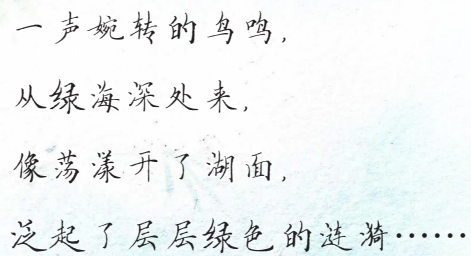 一声婉转的鸟鸣，
从绿海深处来，
像荡漾开了湖面，
泛起了层层绿色的涟漪……